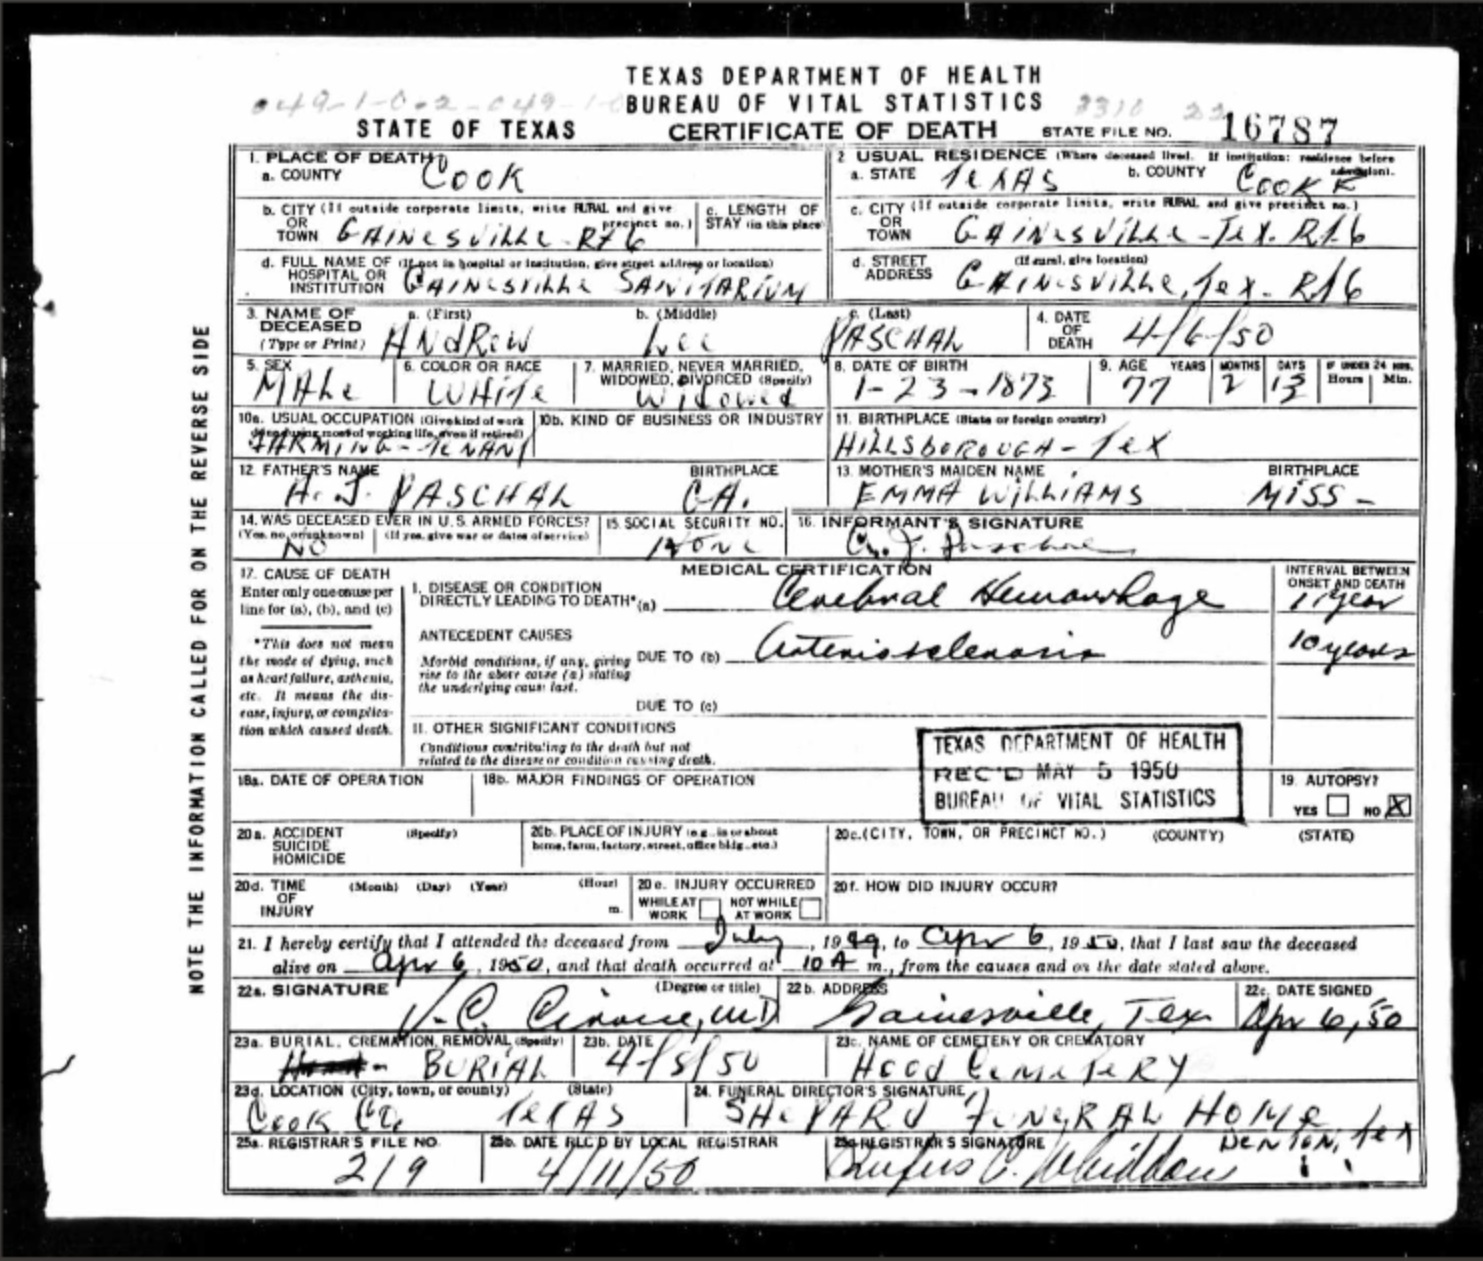 TEXAS DEPARTMENT OF HEALTH
BUREAU OF VITAL STATISTICS
STATE OF TEXAS CERTIFICATE OF DEATH STATE FILE NO. 16787
1. PLACE OF DEATH 2 USUAL RESIDENCE (Where deceased lived. If institution: residence before admission).
a. COUNTY COOK a. STATE TEXAS b. COUNTY COOKE
b. CITY (If outside corporate limits, write RURAL and give precinct no.) OR TOWN GAINESVILLE-Rt 6 c. LENGTH OF STAY (in this place)
c. CITY (If outside corporate limits, write RURAL and give precinct no.) OR TOWN GAINESVILLE-Tex. Rt. 6
d. FULL NAME OF HOSPITAL OR INSTITUTION (If not in hospital or institution, give street address or location) GAINESVILLE SANITARIUM
d. STREET ADDRESS (If rural, give location) GAINESVILLE, Tex- Rt 6
3. NAME OF DECEASED (Type or Print) a. (First) ANDREW b. (Middle) Lee c. (Last) PASCHAL 4. DATE OF DEATH 4/6/50
5. SEX MALE 6. COLOR OR RACE WHITE 7. MARRIED, NEVER MARRIED, WIDOWED, DIVORCED (Specify) Widowed 8. DATE OF BIRTH 1-23-1873 9. AGE YEARS 77 MONTHS 2 DAYS 13 IF UNDER 24 HRS. Hours Min.
10a. USUAL OCCUPATION (Give kind of work done during most of working life, even if retired) FARMING-TENANT 10b. KIND OF BUSINESS OR INDUSTRY 11. BIRTHPLACE (State or foreign country) HILLSBOROUGH-TEX
12. FATHER'S NAME A. J. PASCHAL BIRTHPLACE GA. 13. MOTHER'S MAIDEN NAME EMMA WILLIAMS BIRTHPLACE MISS-
14. WAS DECEASED EVER IN U.S. ARMED FORCES? (Yes, no, or unknown) NO (If yes, give war or dates of service) 15. SOCIAL SECURITY NO. NONE 16. INFORMANT'S SIGNATURE
MEDICAL CERTIFICATION
17. CAUSE OF DEATH
Enter only one cause per line for (a), (b), and (c)
*This does not mean the mode of dying, such as heart failure, asthenia, etc. It means the disease, injury, or complication which caused death.
I. DISEASE OR CONDITION DIRECTLY LEADING TO DEATH* (a) Cerebral Hemorrhage INTERVAL BETWEEN ONSET AND DEATH 1 year
ANTECEDENT CAUSES
Morbid conditions, if any, giving rise to the above cause (a) stating the underlying cause last.
DUE TO (b) Arteriosclerosis 10 years
DUE TO (c)
II. OTHER SIGNIFICANT CONDITIONS
Conditions contributing to the death but not related to the disease or condition causing death.
TEXAS DEPARTMENT OF HEALTH
REC'D MAY 5 1950
BUREAU OF VITAL STATISTICS
18a. DATE OF OPERATION 18b. MAJOR FINDINGS OF OPERATION 19. AUTOPSY? YES NO X
20a. ACCIDENT SUICIDE HOMICIDE (Specify) 20b. PLACE OF INJURY (e.g., in or about home, farm, factory, street, office bldg., etc.) 20c. (CITY, TOWN, OR PRECINCT NO.) (COUNTY) (STATE)
20d. TIME OF INJURY (Month) (Day) (Year) (Hour) m. 20e. INJURY OCCURRED WHILE AT WORK NOT WHILE AT WORK 20f. HOW DID INJURY OCCUR?
21. I hereby certify that I attended the deceased from July, 1949, to Apr 6, 1950, that I last saw the deceased
alive on Apr 6, 1950, and that death occurred at 10 A m., from the causes and on the date stated above.
22a. SIGNATURE (Degree or title) 22b. ADDRESS Gainesville, Tex 22c. DATE SIGNED Apr 6, 50
23a. BURIAL, CREMATION, REMOVAL (Specify) BURIAL 23b. DATE 4/8/50 23c. NAME OF CEMETERY OR CREMATORY HOOD CEMETERY
23d. LOCATION (City, town, or county) (State) COOK CO. TEXAS 24. FUNERAL DIRECTOR'S SIGNATURE SHEPARD FUNERAL HOME DENTON, Tex
25a. REGISTRAR'S FILE NO. 219 25b. DATE REC'D BY LOCAL REGISTRAR 4/11/50 25c. REGISTRAR'S SIGNATURE Rufus C. Whiddon
NOTE THE INFORMATION CALLED FOR ON THE REVERSE SIDE